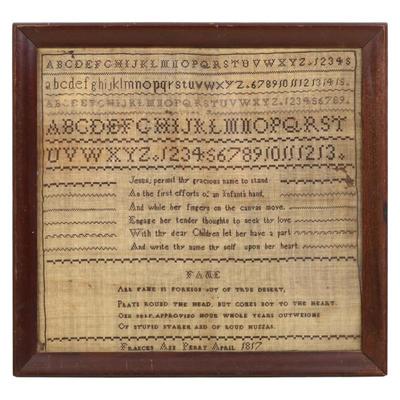 ABCDEFGHIJKLMNOPQRSTUVWXYZ.12345
abcdefghijklmnopqrstuvwxyz.67891011121314 15.
ABCDEFGHIJKLMNOPQRSTUVWXYZ.123456789.
ABCDEFGHIJKLMNOPQRST
UVWXYZ.12345678910111213.
Jesus, permit thy gracious name to stand
As the first efforts of an Infants hand,
And while her fingers on the canvas move,
Engage her tender thoughts to seek thy love
With thy dear Children let her have a part
And write thy name thy self upon her heart.
FAME
ALL FAME IS FOREIGN BUT OF TRUE DESERT,
PLAYS ROUND THE HEAD, BUT COMES NOT TO THE HEART.
ONE SELF APPROVING HOUR WHOLE YEARS OUTWEIGHS
OF STUPID STARER AND OF LOUD HUZZAS.
FRANCES ANN PERRY APRIL 1817